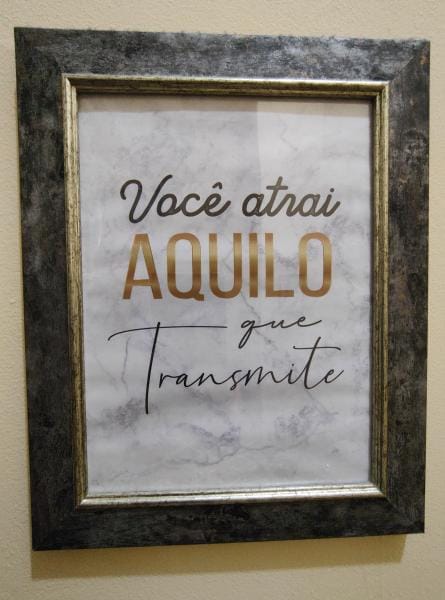 Você atrai
AQUILO
que
Transmite